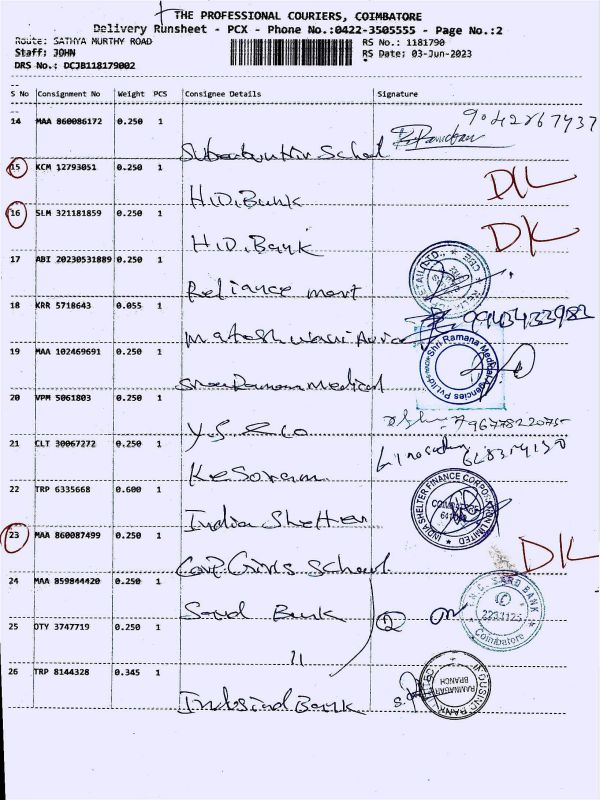 THE PROFESSIONAL COURIERS, COIMBATORE
Delivery Runsheet - PCX - Phone No.:0422-3505555 - Page No.:2
Route: SATHYA MURTHY ROAD
RS No.: 1181790
Staff: JOHN
RS Date: 03-Jun-2023
DRS No.: DCJB118179002
S No Consignment No Weight PCS Consignee Details Signature
14 MAA 860086172 0.250 1
School
15 KCM 12793051 0.250 1
H.D.Bank
DK
16 SLM 321181859 0.250 1
H.D.Bank
DK
17 ABI 20230531889 0.250 1
Reliance mart
18 KRR 5718643 0.055 1
9943433982
19 MAA 102469691 0.250 1
Medical
Shri Ramana Medical Agencies Pvt.Ltd
20 VPM 5061803 0.250 1
Y.S. & Co
21 CLT 30067272 0.250 1
Kesoram
22 TRP 6335668 0.600 1
India Shelter
INDIA SHELTER FINANCE CORPORATION LIMITED
23 MAA 860087499 0.250 1
Girls School
DK
24 MAA 859844420 0.250 1
Bank
2
SARD BANK
Coimbatore
25 OTY 3747719 0.250 1
11
26 TRP 8144328 0.345 1
IndusInd Bank
BRANCH